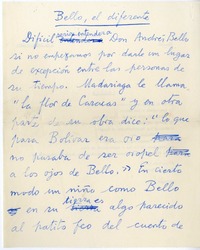 Bello, el diferente
Difícil sería entender a Don Andrés Bello
si no empezamos por darle un lugar
de excepción entre las personas de
su tiempo. Madariaga le llama
"la flor de Caracas" y en otra
parte de su obra dice: "lo que
para Bolívar era oro
no pasaba de ser oropel
a los ojos de Bello." En cierto
modo un niño como Bello
tiene
en su algo parecido
al patito feo del cuento de